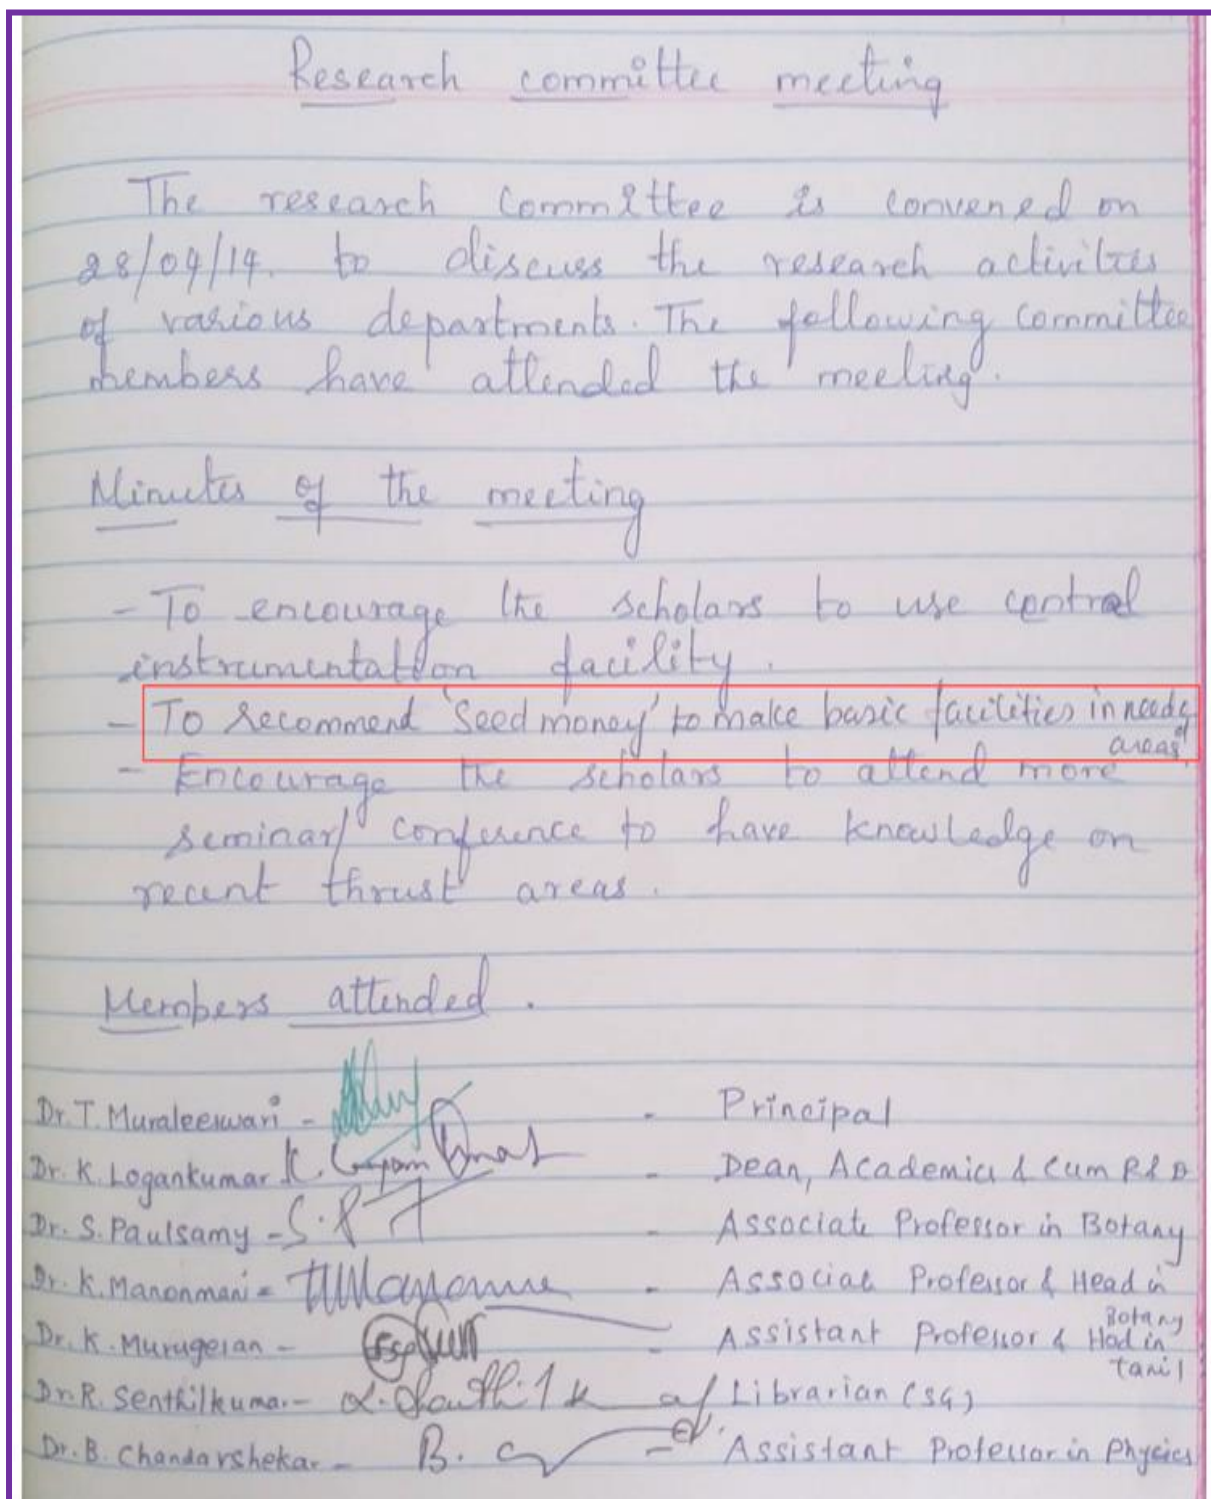 Research committee meeting
The research Committee is convened on
28/04/14. to discuss the research activities
of various departments. The following Committee
members have attended the meeting.
Minutes of the meeting
- To encourage the scholars to use central
instrumentation facility.
- To recommend 'Seed money' to make basic facilities in needy
areas.
- Encourage the scholars to attend more
seminar/ conference to have knowledge on
recent thrust areas.
Members attended.
Dr. T. Muraleeswari - - Principal
Dr. K. Logankumar K. - Dean, Academics & Cum R & D
Dr. S. Paulsamy - S.P - Associate Professor in Botany
Dr. K. Manonmani - - Associate Professor & Head in
Botany
Dr. K. Murugesan - - Assistant Professor & Hod in
tamil
Dr. R. Senthilkumar - Librarian (SG)
Dr. B. Chandarshekar - B. - Assistant Professor in Physics